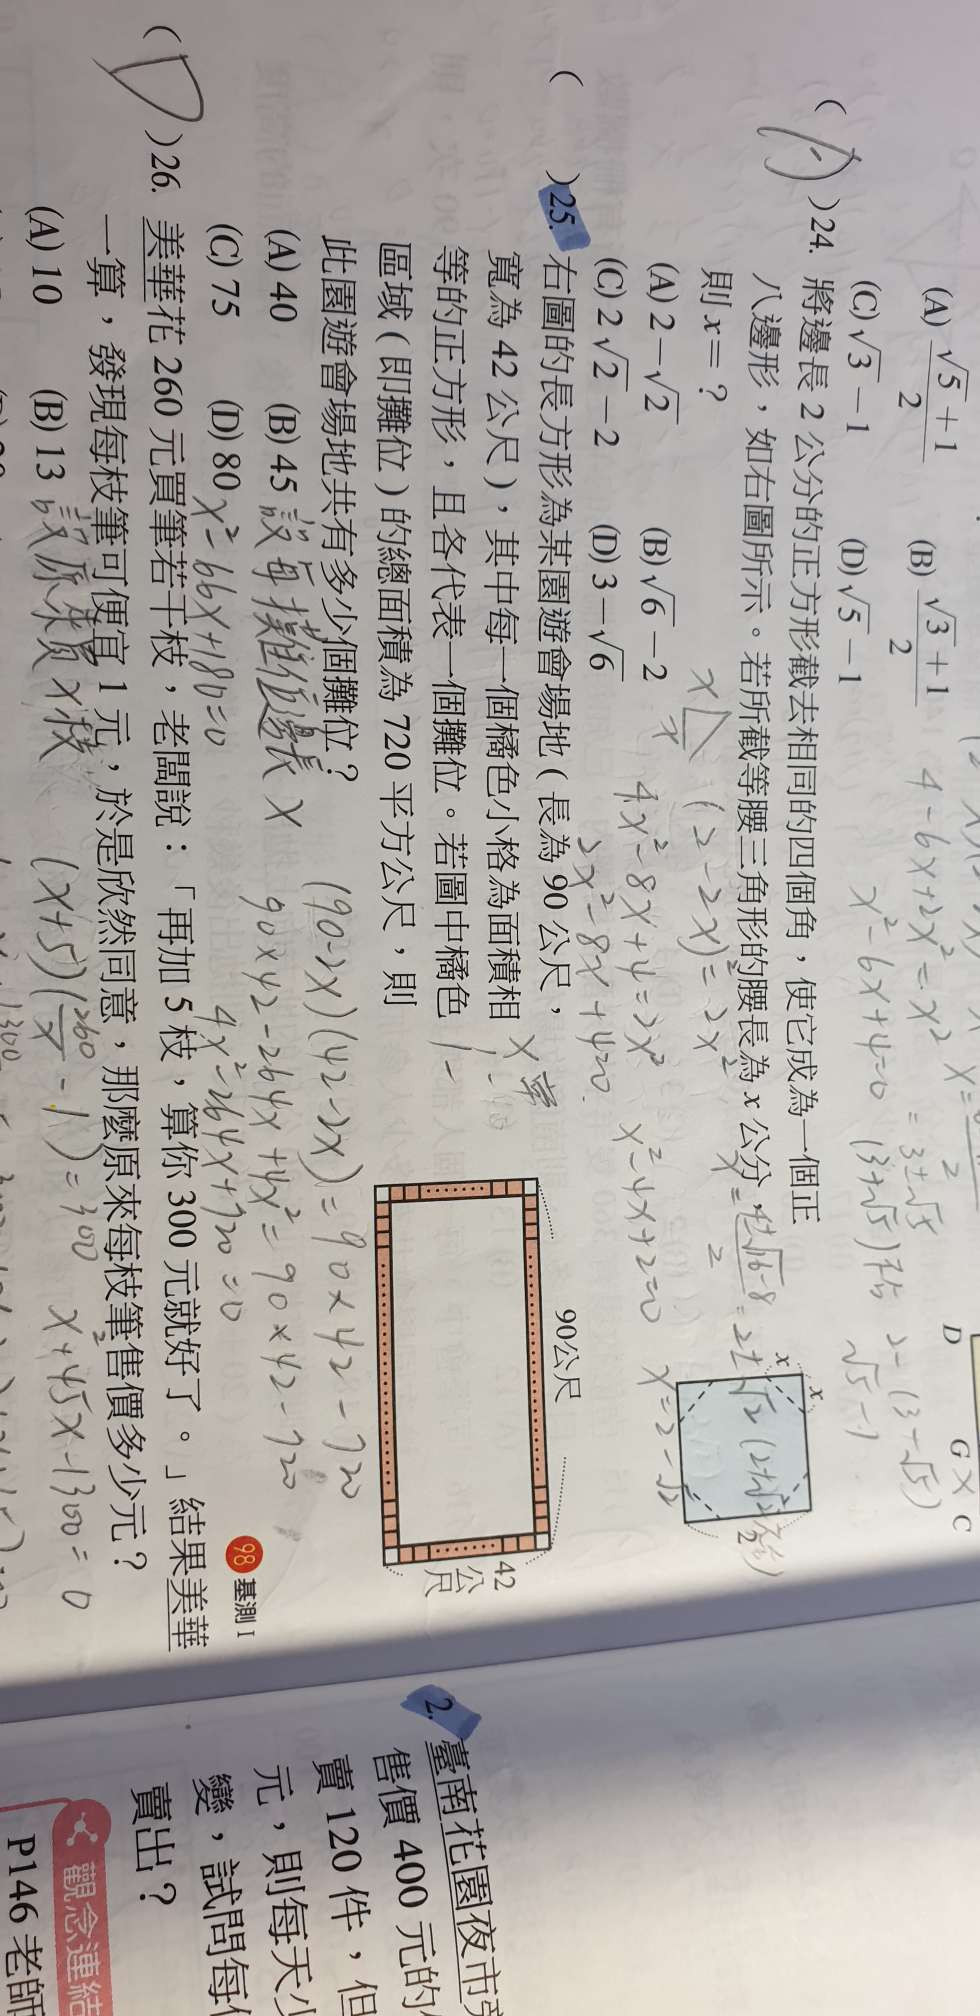 (A) √5+1/2 (B) √3+1/2
(C) √3－1 (D) √5－1
4-6x+2x²=x²
x²-6x+4=0
=3±√5
(3+√5)不合
2-(3-√5)
√5-1
D G x C
( A )24. 將邊長 2 公分的正方形截去相同的四個角，使它成為一個正
八邊形，如右圖所示。若所截等腰三角形的腰長為 x 公分，
則 x＝？
(A) 2－√2 (B) √6－2
(C) 2√2－2 (D) 3－√6
x
x
(2-2x)²=2x²
4x²-8x+4=2x²
2x²-8x+4=0
x²-4x+2=0
x=2-√2
x
x
2
( )25. 右圖的長方形為某園遊會場地（長為 90 公尺，
寬為 42 公尺），其中每一個橘色小格為面積相
等的正方形，且各代表一個攤位。若圖中橘色
區域（即攤位）的總面積為 720 平方公尺，則
此園遊會場地共有多少個攤位？
(A) 40 (B) 45
(C) 75 (D) 80
98 基測 I
90公尺
42
公
尺
設每攤位邊長 x
(90-2x)(42-2x)=90×42-720
90×42-264x+4x²=90×42-720
4x²-264x+720=0
x²-66x+180=0
( D )26. 美華花 260 元買筆若干枝，老闆說：「再加 5 枝，算你 300 元就好了。」結果美華
一算，發現每枝筆可便宜 1 元，於是欣然同意，那麼原來每枝筆售價多少元？
(A) 10 (B) 13
設原來買 x 枝
(x+5)(260/x-1)=300
x²+45x-1300=0
2. 臺南花園夜市
售價 400 元的
賣 120 件，但
元，則每天少
變，試問每
賣出？
觀念連結
P146 老師